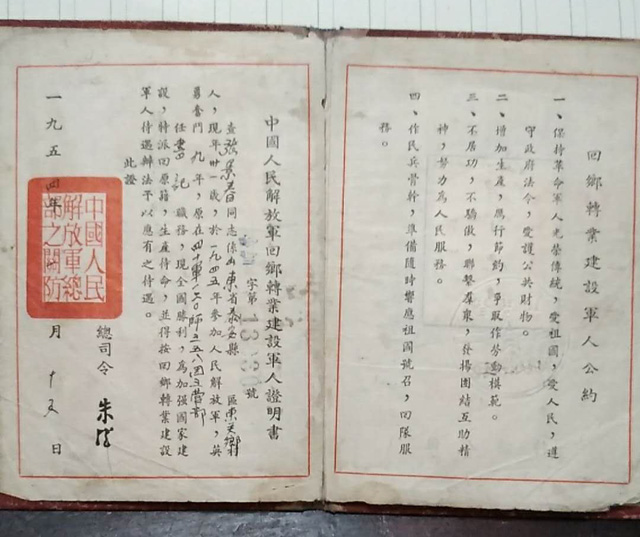 回鄉轉業建設軍人公約
一、保持革命軍人光榮傳統，愛祖國，愛人民，遵
守政府法令，愛護公共財物。
二、增加生產，厲行節約，爭取作勞動模範。
三、不居功，不驕傲，聯繫羣衆，發揚團結互助精
神，努力為人民服務。
四、作民兵骨幹，準備隨時響應祖國號召，回隊服
務。
中國人民解放軍回鄉轉業建設軍人證明書
字第 號
查張景春同志係山東省泰安縣 區東关鄉
人，現年廿一歲，於一九四五年參加人民解放軍，英
勇奮鬥九年，原在四十軍一二〇師三五八团三营部
任書記職務，現全國勝利，為加强國家建
設，特派回原籍，生產待命，並得按回鄉轉業建設
軍人待遇辦法予以應有之待遇。
此證
總司令 朱德
一九五四年 月十五日
中國人民
解放軍總
部之關防